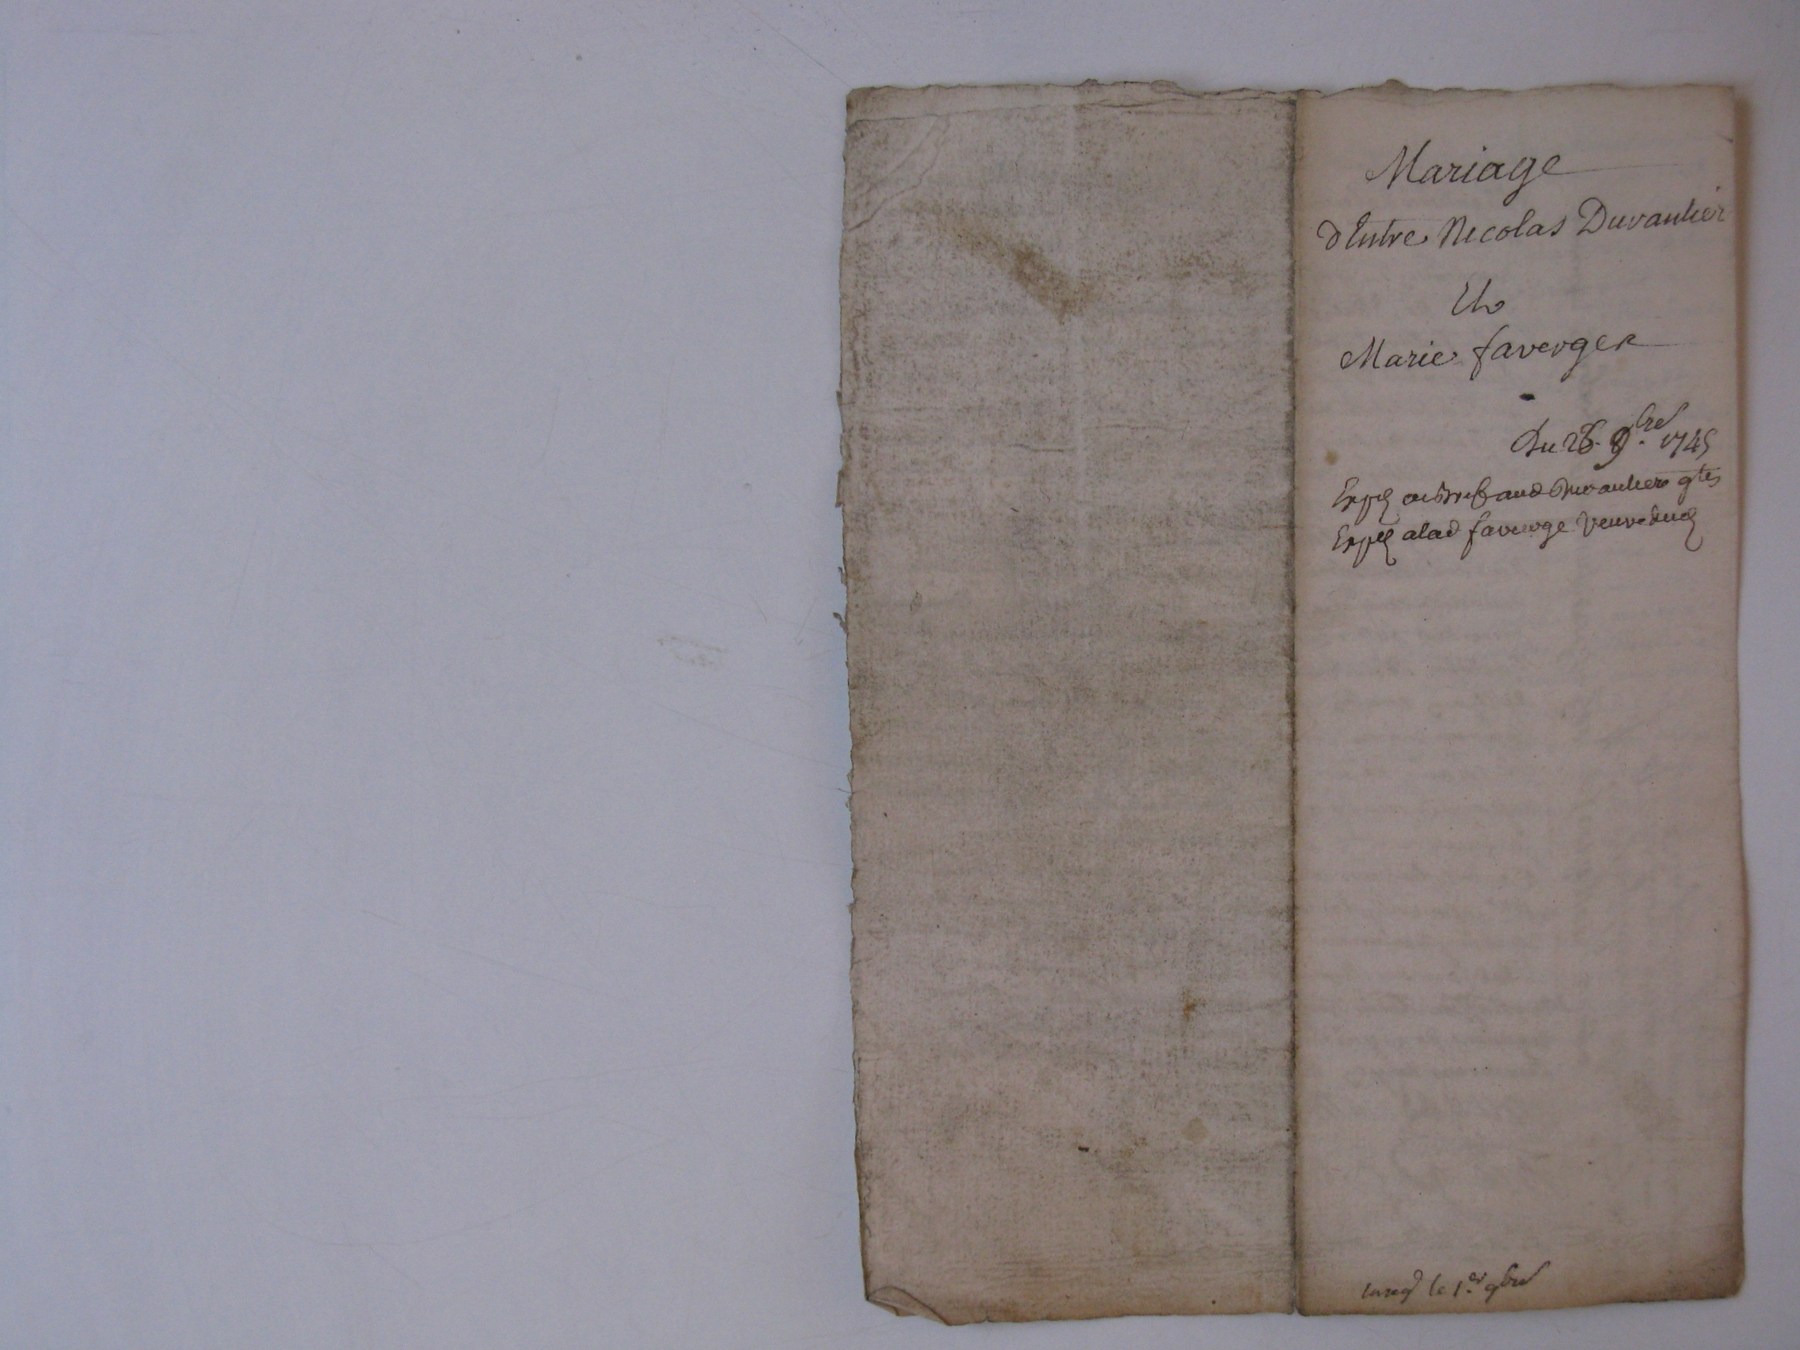 Mariage
d'Entre Nicolas Duvaulier
Et
Marie faverger
Du 26. 9.bre 1745
Exp.é au Duvaulier
Exp.é a lad faverge veuve
le 1.er 9bre